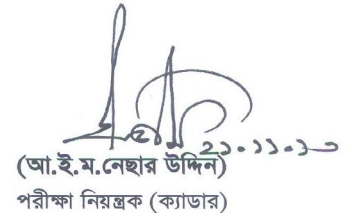 ২২.১১.২০
(আ.ই.ম.নেছার উদ্দিন)
পরীক্ষা নিয়ন্ত্রক (ক্যাডার)